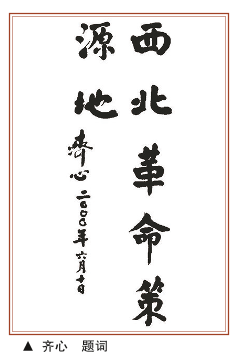 西北革命策
源地
齊心 二〇〇八年六月十日
▲ 齐心 题词